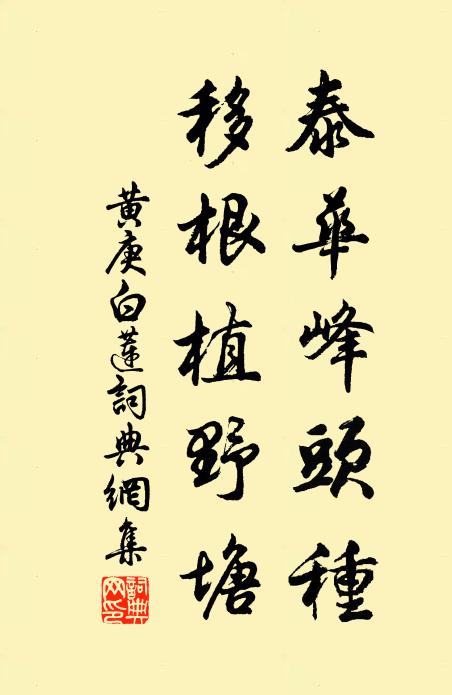 泰華峰頭種
移根植野塘
黄庚白蓮詞典網集
詞典
网印